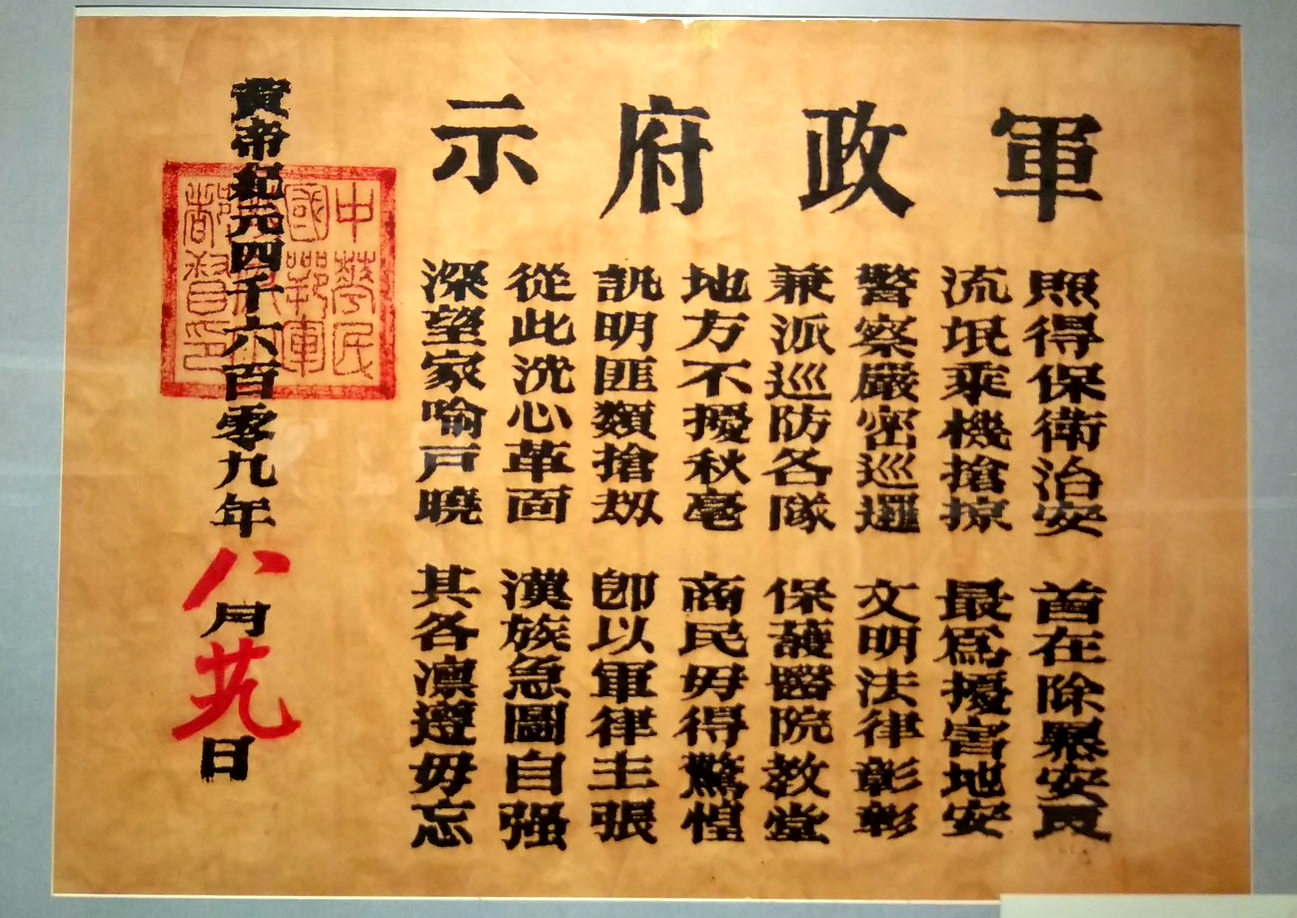 軍政府示
照得保衛治安 首在除暴安良
流氓乘機搶掠 最爲擾害地安
警察嚴密巡邏 文明法律彰彰
兼派巡防各隊 保護醫院教堂
地方不擾秋毫 商民毋得驚惶
訊明匪類搶劫 卽以軍律主張
從此洗心革面 漢族急圖自强
深望家喻戸曉 其各凛遵毋忘
黃帝紀元四千六百零九年八月廿九日
中華民
國鄂軍
都督印